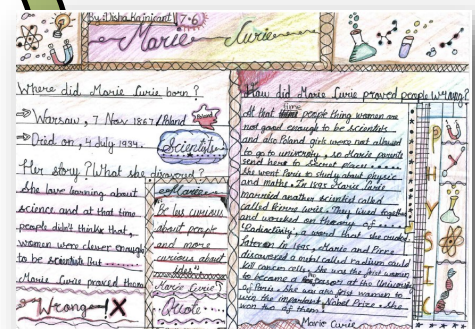 By: Disha Rajnicant 7-6
Marie Curie
Where did Marie Curie born?
Warsaw, 7 Nov 1867/Poland
Poland
Died on, 4 July 1934.
Scientist
Her story? What she discovered?
She love learning about
science and at that time
people didn't thinks that,
women were clever enough
to be scientists. But
Marie Curie proved them
Wrong! X
Marie
Be less curious
about people
and more
curious about
ideas
Marie Curie
Quote
How did Marie Curie proved people wrong?
At that time people thing women are
not good enough to be scientists
and also Poland girls were not allowed
to go to university, so Marie parents
send her to secret places
She went Paris to study about physic
and maths. In 1895 Marie
married another scientist called
called Pierre Curie. They lived together
and worked on theory of
'Radioactivity', a word that she
Later on In 1902, Marie and Pierre
discovered a metal called radium could
kill cancer cells. She was the first women
to become a person at the University
of Paris. She was also first women to
win the important Nobel Prize. She
won two of them!
Marie Curie
PHYSIC